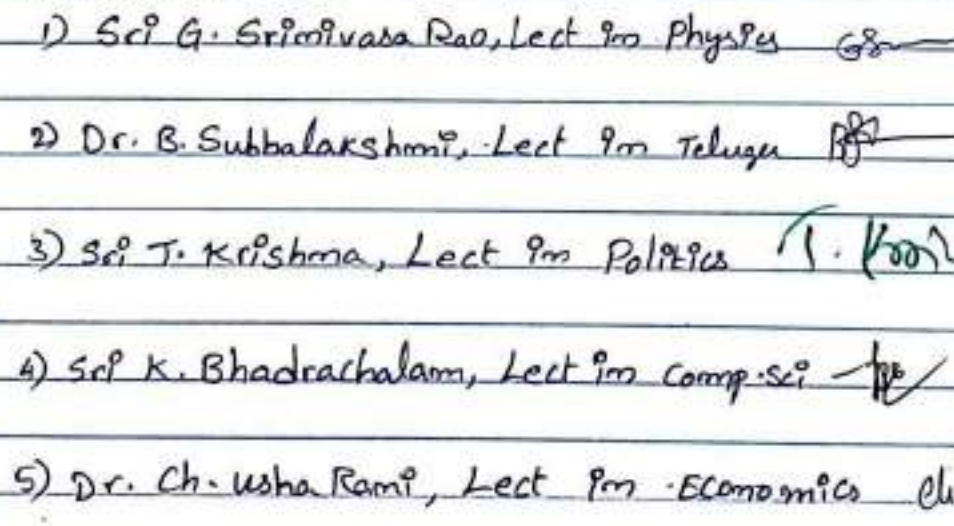 1) Sri G. Srinivasa Rao, Lect in Physics
2) Dr. B. Subbalakshmi, Lect in Telugu
3) Sri T. Krishna, Lect in Politics
4) Sri K. Bhadrachalam, Lect in Comp.Sci
5) Dr. Ch. Usha Rani, Lect in Economics